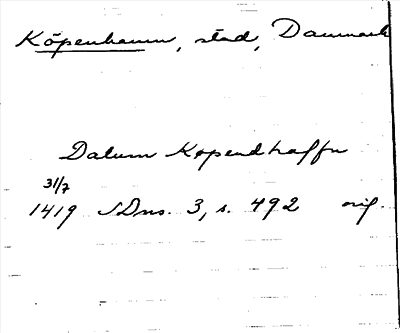 Köpenhamn, stad, Danmark
Datum Kopendhaffn
31/7
1419 SDns. 3, s. 492 orig.